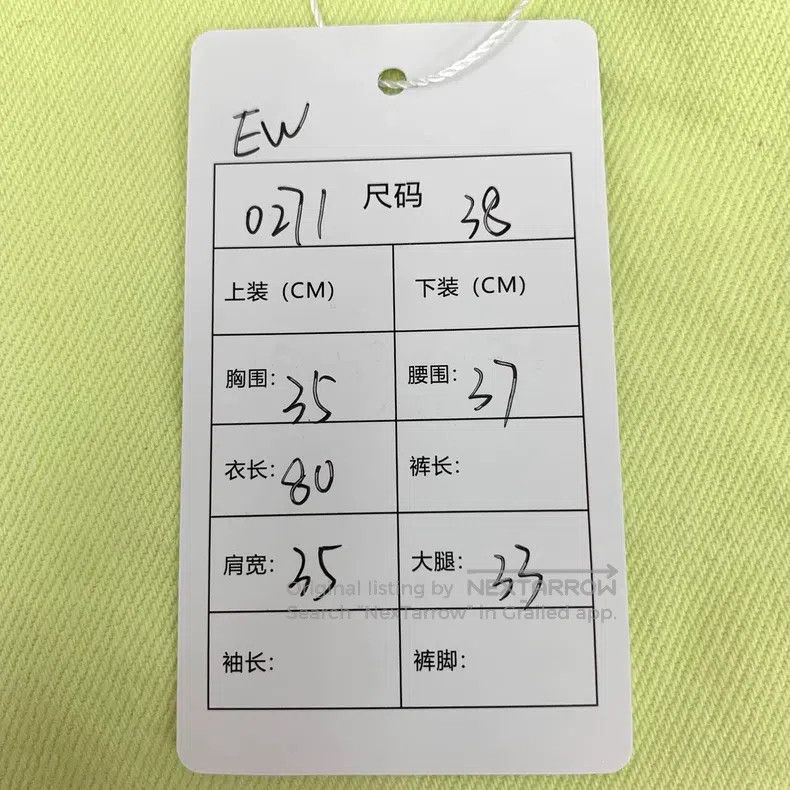 EW
0271 尺码 38
上装（CM） 下装（CM）
胸围：35 腰围：37
衣长：80 裤长：
肩宽：35 大腿：33
Original listing by NEXTARROW
Search "NexTarrow" in Grailed app.
袖长： 裤脚：